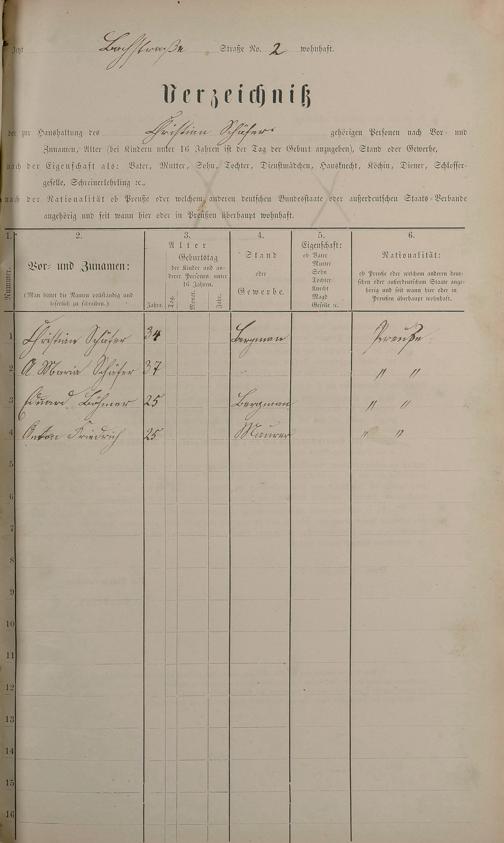 Jetzt Bachstraße Straße No. 2 wohnhaft.
Verzeichniß
der zur Haushaltung des Christian Schäfer gehörigen Personen nach Vor- und
Zunamen, Alter (bei Kindern unter 16 Jahren ist der Tag der Geburt anzugeben), Stand oder Gewerbe,
nach der Eigenschaft als: Vater, Mutter, Sohn, Tochter, Dienstmädchen, Hausknecht, Köchin, Diener, Schlosser-
geselle, Schreinerlehrling ꝛc.,
nach der Nationalität ob Preuße oder welchem anderen deutschen Bundesstaate oder außerdeutschen Staats-Verbande
angehörig und seit wann hier oder in Preußen überhaupt wohnhaft.
1. 2. 3. 4. 5. 6.
Nummer.
Vor- und Zunamen:
(Man bittet die Namen vollständig und
leserlich zu schreiben.)
Alter
Geburtstag
der Kinder und an-
derer Personen unter
16 Jahren.
Jahre. Tag. Monat. Jahr.
Stand
oder
Gewerbe.
Eigenschaft:
ob Vater
Mutter
Sohn
Tochter
Knecht
Magd
Geselle ꝛc.
Nationalität:
ob Preuße oder welchem anderen deut-
schen oder außerdeutschen Staate ange-
hörig und seit wann hier oder in
Preußen überhaupt wohnhaft.
1 Christian Schäfer 34 Bergman Preuße
2 A Maria Schäfer 37 " "
3 Eduard Böhmer 25 Bergman " "
4 Anton Friedrich 25 Maurer " "
5
6
7
8
9
10
11
12
13
14
15
16